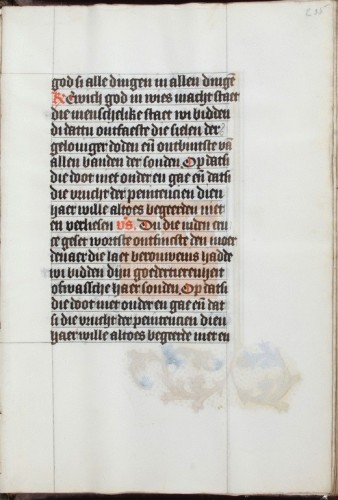 god si alle dingen in allen dingē
Ewich god in wies macht staet
die menschelike staet wi bidden
di dattu ontfaeste die sielen der
geloviger doden eñ ontbintste vā
allen banden der sonden. Op datsi
die doot niet onder en gae eñ datsi
die vrucht der penitencien dien
haer wille altoes begeerden niet
en verliesen vs. Du die inden cru
ce geset wortste ontfincste den moer
denaer die laet berouwenis hadde
wi bidden dijn goedertierenheit
ofwassche haer sonden. Op datsi
die doot niet onder en gae eñ dat
si die vrucht der penitencien dien
haer wille altoes begeerde niet en